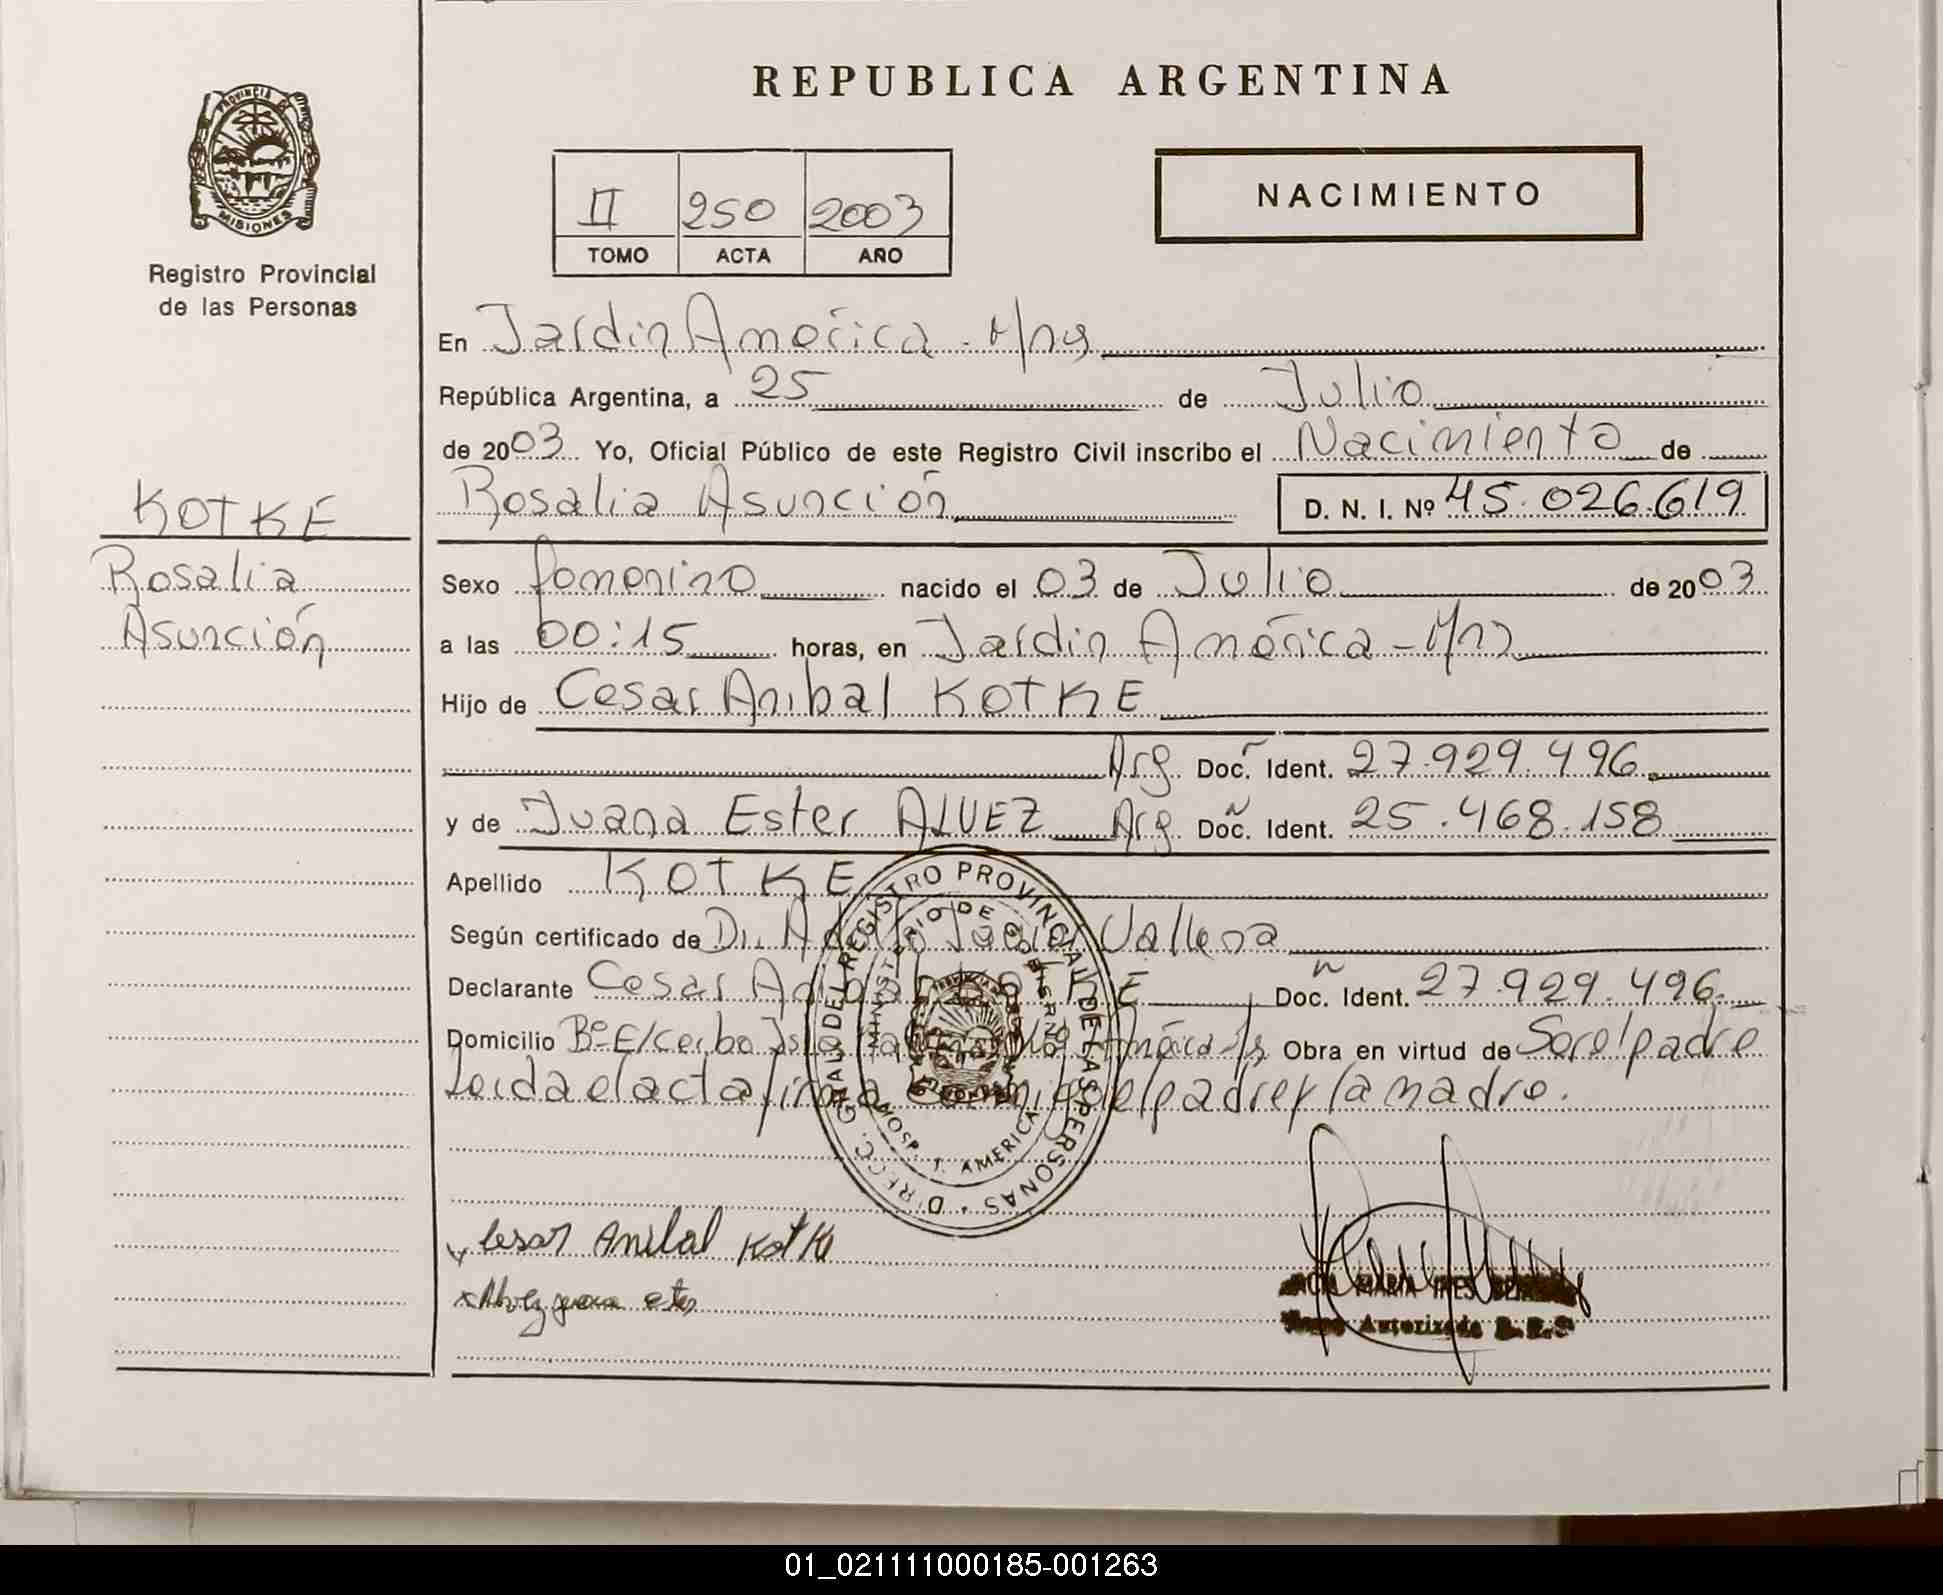 REPUBLICA ARGENTINA
PROVINCIA DE
MISIONES
Registro Provincial
de las Personas
II 250 2003
TOMO ACTA AÑO
NACIMIENTO
En Jardin América - M/ns
República Argentina, a 25 de Julio
de 2003 Yo, Oficial Público de este Registro Civil inscribo el Nacimiento de
Rosalia Asunción D. N. I. Nº 45.026.619
KOTKE
Rosalia
Asunción
Sexo femenino nacido el 03 de Julio de 2003
a las 00:15 horas, en Jardin América - M/ns
Hijo de Cesar Anibal KOTKE
Arg. Doc. Ident. 27.929.496
y de Juana Ester ALVEZ Arg. Doc. Ident. 25.468.158
Apellido KOTKE
Según certificado de Dr. Vallena
Declarante Cesar Anibal KOTKE Doc. Ident. 27.929.496
Domicilio Bº E/cerbo América Obra en virtud de Ser el padre
Leida el acta firma conmigo el padre y la madre.
DIRECC. GRAL. DEL REGISTRO PROVINCIAL DE LAS PERSONAS
MINISTERIO DE GOBIERNO
HOSP. J. AMERICA
Cesar Anibal Kotke
Alvez juana ester
MARIA INES
Autorizada
01_021111000185-001263